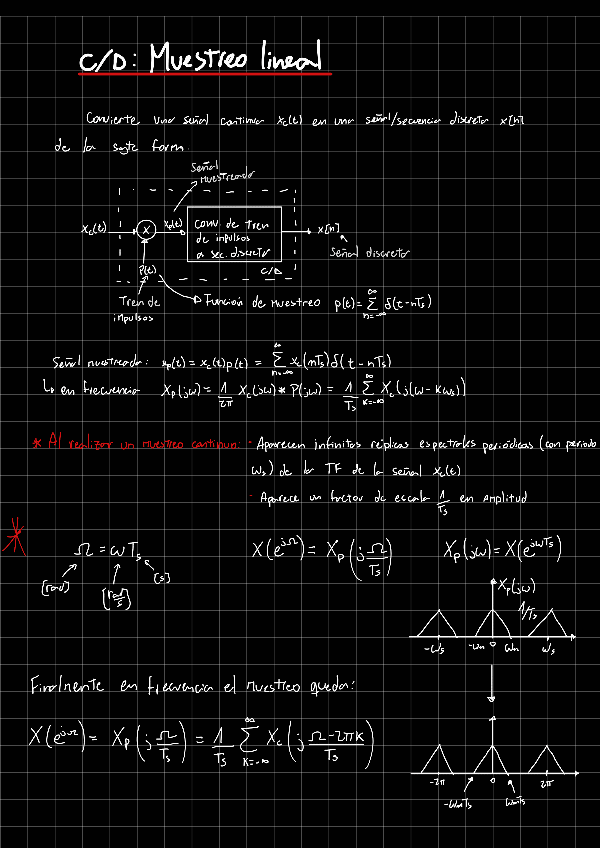 C/D: Muestreo lineal
Convierte una señal continua x_c(t) en una señal/secuencia discreta x[n]
de la sgte forma
Señal
muestreada
x_c(t)
x
x_p(t)
Conv. de Tren
de impulsos
a sec. discreta
x[n]
Señal discreta
C/D
p(t)
Tren de
impulsos
Función de muestreo p(t) = ∑_{n=-∞}^{∞} δ(t-nT_s)
Señal muestreada: x_p(t) = x_c(t)p(t) = ∑_{n=-∞}^{∞} x_c(nT_s)δ(t-nT_s)
↳ en frecuencia X_p(jω) = 1/2π X_c(jω) * P(jω) = 1/T_s ∑_{k=-∞}^{∞} X_c(j(ω-kω_s))
* Al realizar un muestreo continuo: · Aparecen infinitas réplicas espectrales periódicas (con periodo
ω_s) de la TF de la señal x_c(t)
· Aparece un factor de escala 1/T_s en amplitud
* Ω = ωT_s
[rad] [rad/s] [s]
X(e^{jΩ}) = X_p(j Ω/T_s) X_p(jω) = X(e^{jωT_s})
X_p(jω)
1/T_s
-ω_s -ω_m 0 ω_m ω_s
Finalmente en frecuencia el muestreo queda:
X(e^{jΩ}) = X_p(j Ω/T_s) = 1/T_s ∑_{k=-∞}^{∞} X_c(j (Ω-2πk)/T_s)
-2π 0 2π
-ω_mT_s ω_mT_s